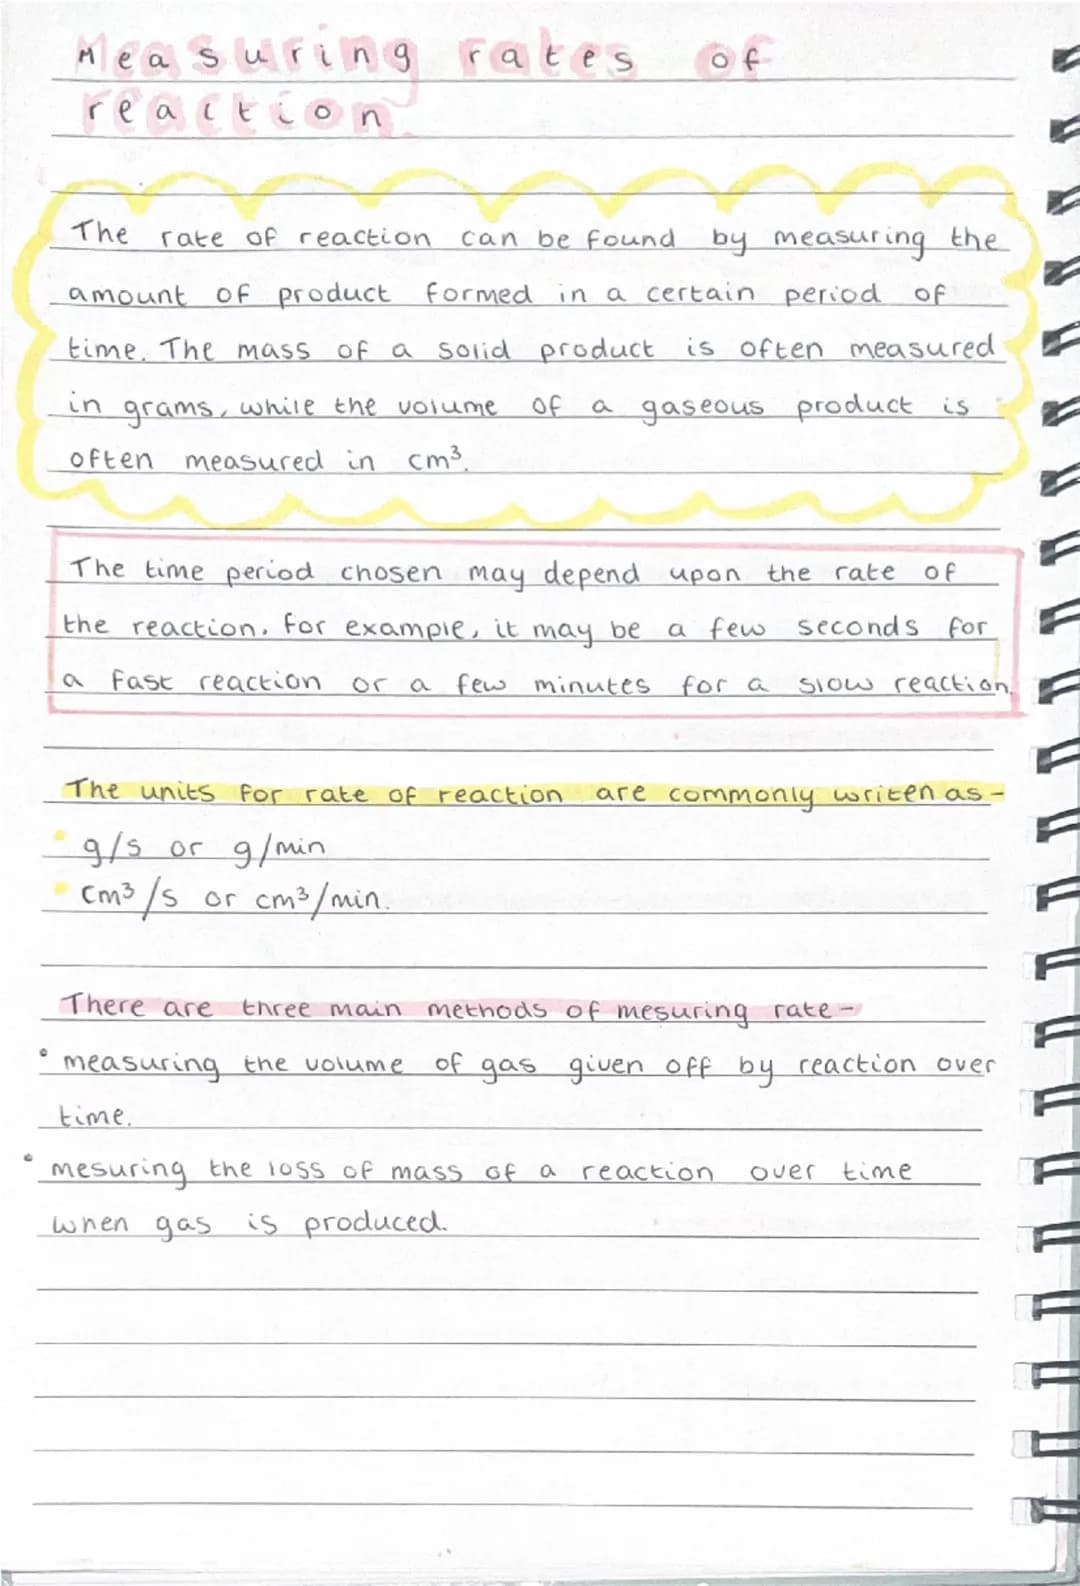 Measuring rates of
reaction.
The rate of reaction can be found by measuring the
amount of product formed in a certain period of
time. The mass of a solid product is often measured
in grams, while the volume of a gaseous product is
often measured in cm³.
The time period chosen may depend upon the rate of
the reaction. For example, it may be a few seconds for
a fast reaction or a few minutes for a slow reaction.
The units for rate of reaction are commonly writen as -
• g/s or g/min
• cm³/s or cm³/min.
There are three main methods of mesuring rate -
• measuring the volume of gas given off by reaction over
time.
• mesuring the loss of mass of a reaction over time
when gas is produced.